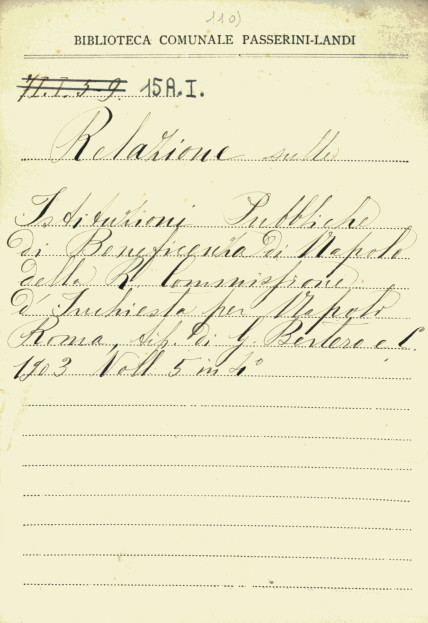 110)
BIBLIOTECA COMUNALE PASSERINI-LANDI
15A.I.
Relazione sulle
Istituzioni Pubbliche
di Beneficenza di Napolo
della R. Commissione
d'Inchiesta per Napolo
Roma, tip. di G. Bertero e C.
1903 Voll 5 in 4°